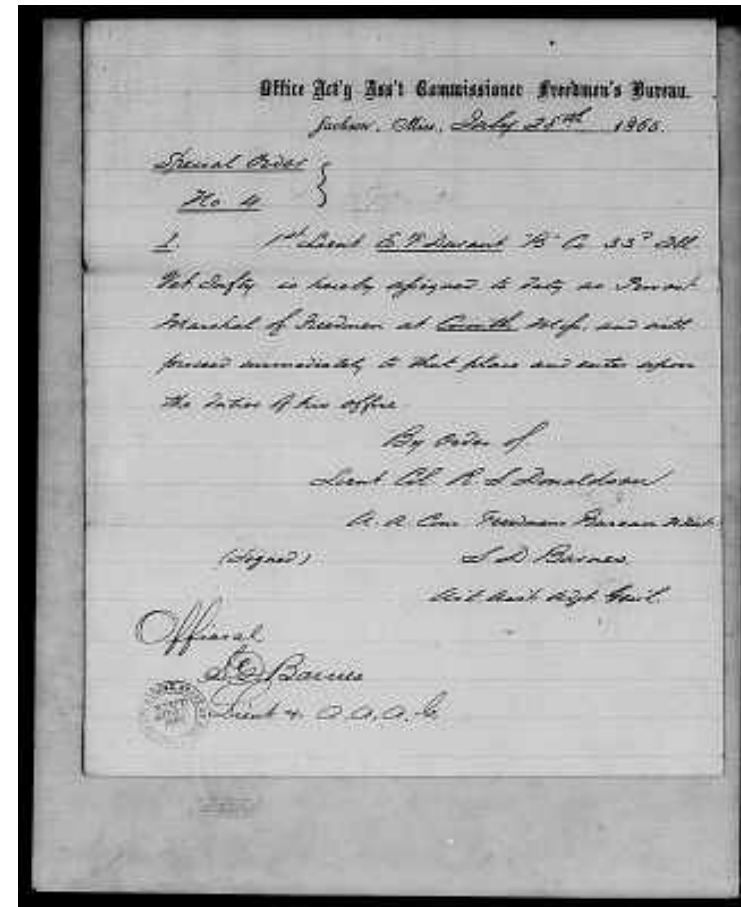 Office Act'g Ass't Commissioner Freedmen's Bureau.
Jackson, Miss, July 28th 1865.
Special Order
No 4
1 1st Lieut "B" Co 33d Ill
Vet Infty is hereby assigned to duty as Provost
Marshal of Freedmen at Corinth Miss. and will
proceed immediately to that place and enter upon
the duties of his office
By Order of
Lieut Col R S Donaldson
A. A. Com Freedmens Bureau
(Signed) S D Barnes
Act Asst Adjt Genl.
Official
S.D. Barnes
Lieut & A.A.A.G.